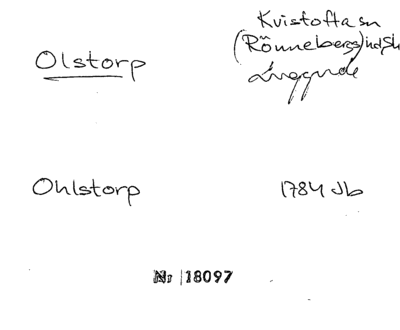 Olstorp
Kvistofta sn
(Rönnebergs) hd Sk
Luggude
Ohlstorp
1784 Jb
Nr 18097